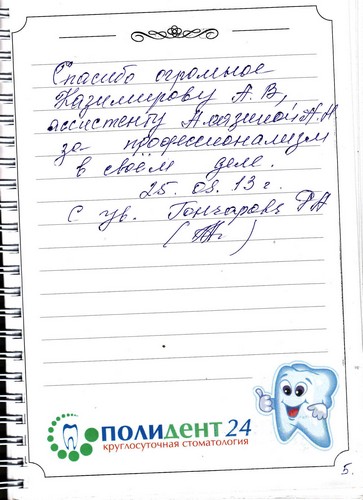 Спасибо огромное
Казимирову А. В,
ассистенту А.Н
за профессионализм
в своём деле.
25. 09. 13 г.
С ув. Гончарова
ПОЛИДЕНТ 24
круглосуточная стоматология
5.